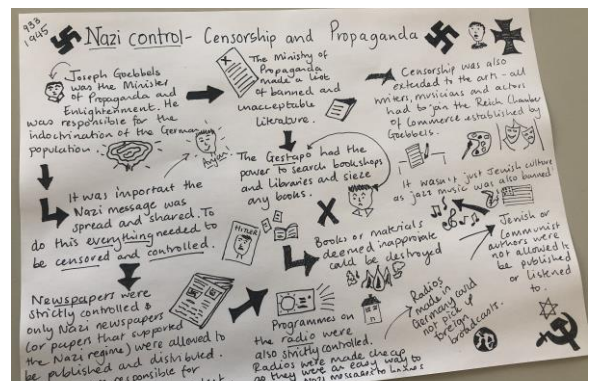 933
1945
Nazi control - Censorship and Propaganda
Joseph Goebbels
was the Minister
of Propaganda and
Enlightenment. He
was responsible for the
indoctrination of the German
population.
Aryan
It was important the
Nazi message was
spread and shared. To
do this everything needed to
be censored and controlled.
Newspapers were
strictly controlled &
only Nazi newspapers
(or papers that supported
the Nazi regime) were allowed to
be published and distributed.
responsible for
The Ministry of
Propaganda
made a list
of banned and
unacceptable
literature.
The Gestapo had the
power to search bookshops
and libraries and sieze
any books.
HITLER
Books or materials
deemed inappropriate
could be destroyed
Programmes on
the radio were
also strictly controlled.
Radios were made cheap
as they were an easy way to
Nazi messages to
Radios
made in
Germany could
not pick up
foreign
broadcasts.
Censorship was also
extended to the arts - all
writers, musicians and actors
had to join the Reich Chamber
of Commerce established by
Goebbels.
It wasn't just Jewish culture
as jazz music was also banned
Jewish or
Communist
authors were
not allowed to
be published
or listened
to.